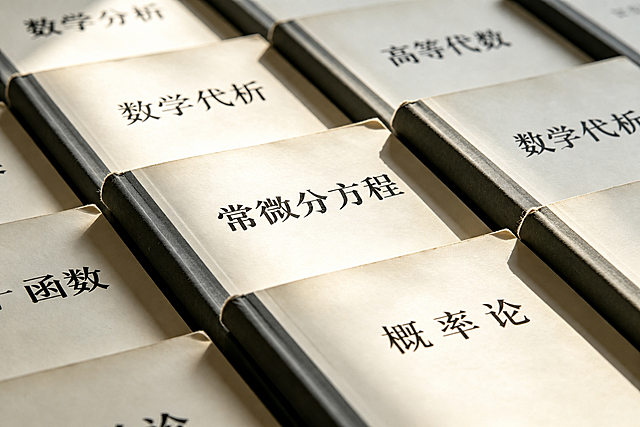 数学分析
高等代数
数学代析
数学代析
常微分方程
函数
概率论
论